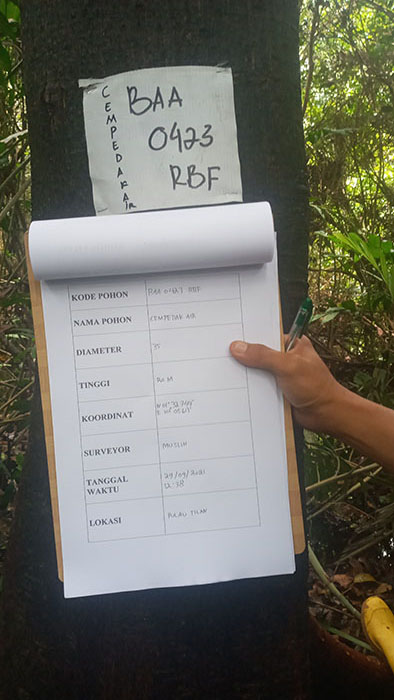 CEMPEDAK AIR
BAA
0423
RBF
KODE POHON BAA 0423 RBF
NAMA POHON CEMPEDAK AIR
DIAMETER 35
TINGGI 20 M
KOORDINAT
SURVEYOR MUSLIM
TANGGAL 29/09/2021
WAKTU 12:38
LOKASI PULAU TILAN